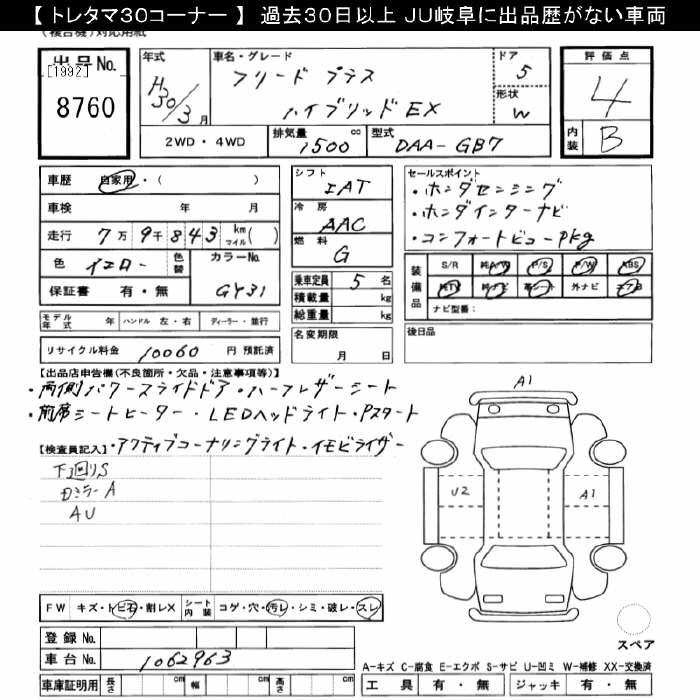 【 トレタマ30コーナー 】 過去30日以上 JU岐阜に出品歴がない車両
(複合機)対応用紙
出品No.
[1992]
8760
年式
H30/3 月
車名・グレード
フリード プラス
ハイブリッド EX
ドア
5
形状
W
評価点
4
内装
B
2WD・4WD
排気量
1500 cc
型式
DAA-GB7
車歴 自家用・( )
車検 年 月
走行 7万 9千 843 km マイル( )
色 イエロー 色替 カラーNo. GY31
保証書 有・無
シフト
IAT
冷房
AAC
燃料
G
乗車定員 5 名
積載量 kg
総重量 kg
名変期限
月 日
セールスポイント
・ホンダセンシング
・ホンダインターナビ
・コンフォートビューpkg
装備品
S/R 純A/W P/S P/W ABS
純TV 純ナビ 革シート 外ナビ エアB
ナビ型番:
後日品
モデル年式 年 ハンドル 左・右 ディーラー・並行
リサイクル料金 10060 円 預託済
【出品店申告欄(不良箇所・欠品・注意事項等)】
・両側パワースライドドア・ハーフレザーシート
・前席シートヒーター・LEDヘッドライト・Pスタート
・アクティブコーナリングライト・イモビライザー
【検査員記入】
下廻りS
ミラーA
AU
A1
U2
A1
FW キズ・トビ石・割レX シート内装 コゲ・穴・汚レ・シミ・破レ・スレ
登録No.
車台No. 1062963
スペア
A-キズ C-腐食 E-エクボ S-サビ U-凹ミ W-補修 XX-交換済
車庫証明用 長さ cm 幅 cm 高さ cm
工具 有・無 ジャッキ 有・無